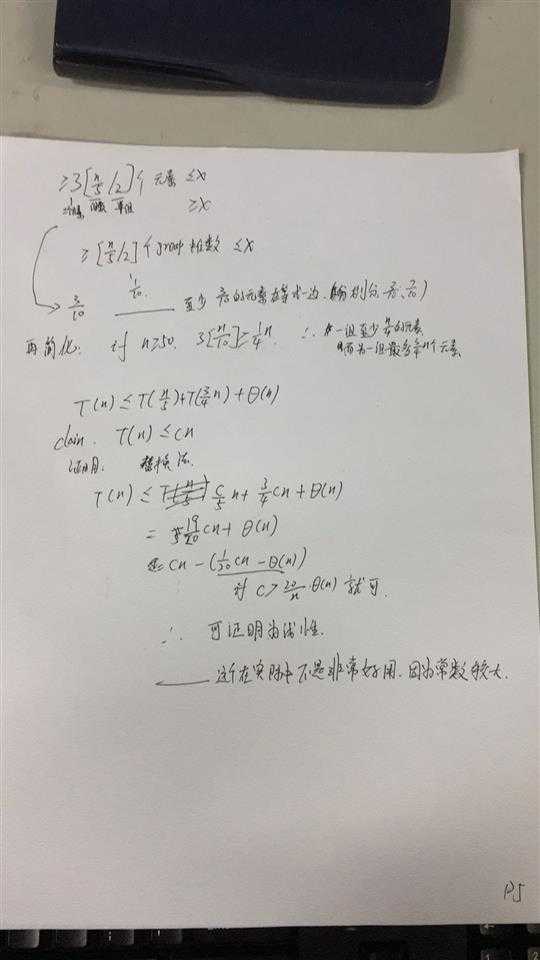 ≥3[n/5/2]个 元素 ≤x
≥x
≥[n/5/2]个group 中位数 ≤x
3/10 至少 的元素在某一边
再简化: 对 n≥50. 3[n/10]≥1/4n. ∴ 一组至少 的元素
而另一组最多 n个元素
T(n)≤T(n/5)+T(3/4n)+Θ(n)
claim. T(n)≤cn
证明: 替换法.
T(n)≤ c/5n+3/4cn+Θ(n)
= 19/20cn+Θ(n)
= cn-(1/20cn-Θ(n))
对 c>20/n·Θ(n) 就可.
∴ 可证明为线性.
这个在实际中不是非常好用. 因为常数较大.
P5